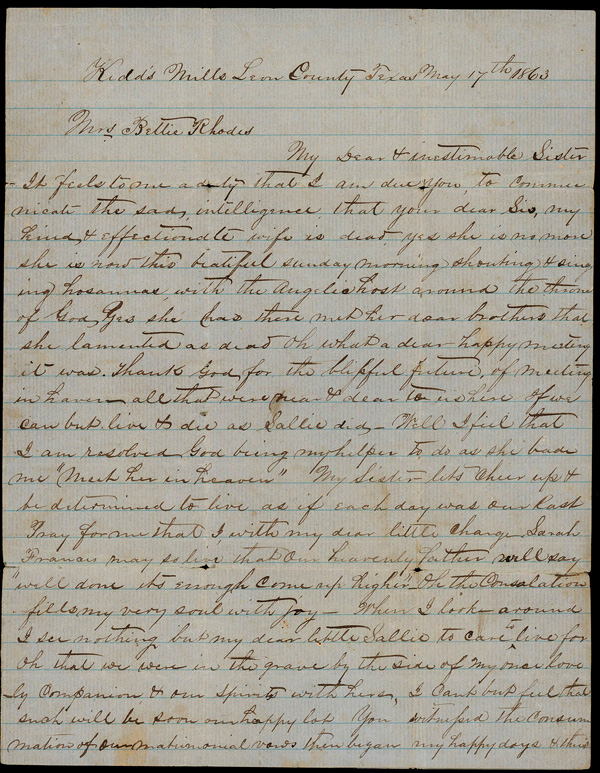 Kidd's Mills Leon County Texas May 17th 1863
Mrs. Bettie Rhodes
My Dear & inestimable Sister
- It feels to me a duty that I am due you, to commu
nicate the sad, intelligence, that your dear Sis, my
kind, & effectionate wife is dead yes she is no more
she is now this beatiful sunday morning shouting & sing
ing hosannas, with the Angelic host around the throne
of God, Yes she has there met her dear brothers that
she lamented as dead Oh what a dear happy meeting
it was. Thank God, for the blissful future, of meeting
in heaven all that were near & dear to us here If we
can but live & die as Sallie did, - Well I feel that
I am resolved God being my helper to do as she bade
me "Meet her in heaven" My Sister lets cheer up &
be determined to live as if each day was our last
Pray for me that I with my dear little charge Sarah
Francis may so live that our heavenly father will say
"well done its enough come up higher" Oh the Consolation
fills my very soul with joy - When I look around
I see nothing but my dear little Sallie to care & live for
Oh that we were in the grave by the side of my once love
-ly Companion, & our spirits with hers, I cant but feel that
such will be soon our happy lot You witnessed the Consum
mation of our matrimonial vows then began my happy days & this